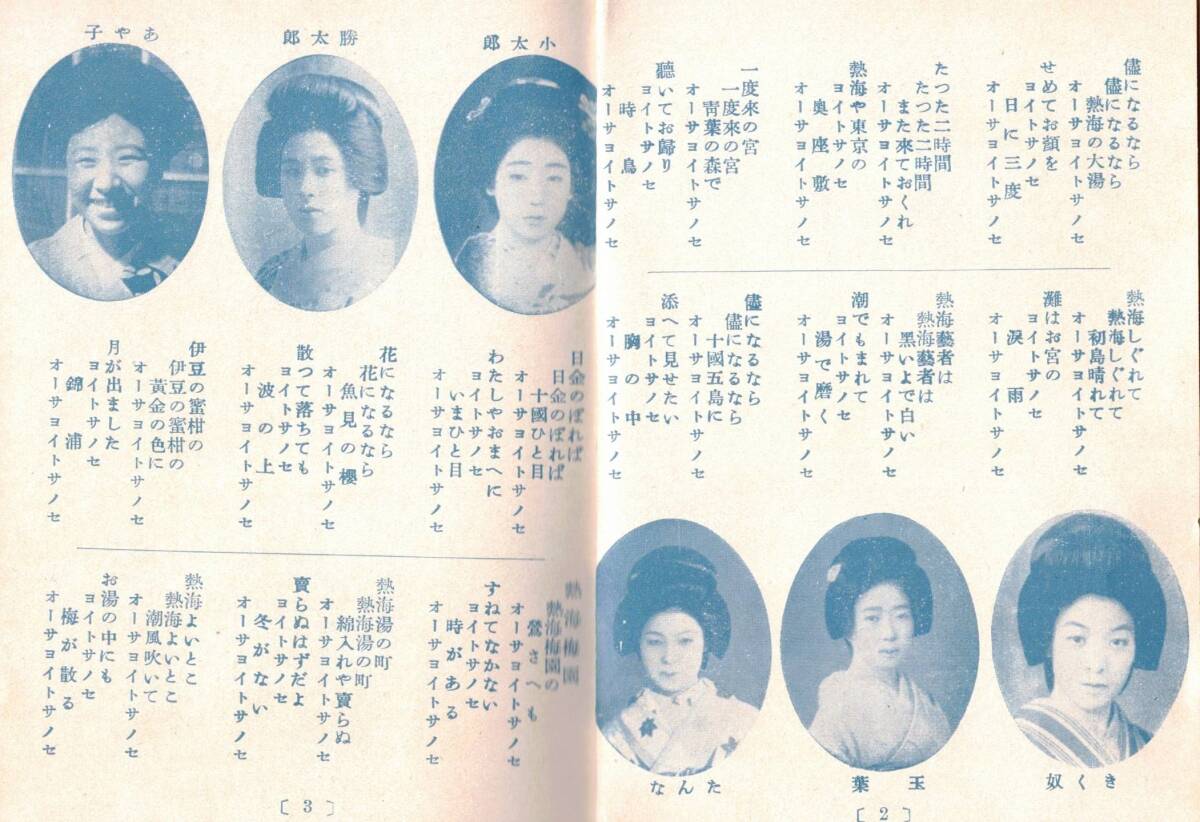 儘になるなら
儘になるなら
熱海の大湯
オーサヨイトサノセ
せめてお顏を
ヨイトサノセ
日に三度
オーサヨイトサノセ
たつた二時間
たつた二時間
また來ておくれ
オーサヨイトサノセ
熱海や東京の
ヨイトサノセ
奥座敷
オーサヨイトサノセ
一度來の宮
一度來の宮
靑葉の森で
オーサヨイトサノセ
聽いてお歸り
ヨイトサノセ
時鳥
オーサヨイトサノセ
熱海しぐれて
熱海しぐれて
初島晴れて
オーサヨイトサノセ
灘はお宮の
ヨイトサノセ
淚雨
オーサヨイトサノセ
熱海藝者は
熱海藝者は
黑いよで白い
オーサヨイトサノセ
潮でもまれて
ヨイトサノセ
湯で磨く
オーサヨイトサノセ
儘になるなら
儘になるなら
十國五島に
オーサヨイトサノセ
添へて見せたい
ヨイトサノセ
胸の中
オーサヨイトサノセ
きく奴
玉葉
たんな
〔2〕
小太郎
勝太郎
あや子
日金のぼれば
日金のぼれば
十國ひと目
オーサヨイトサノセ
わたしやおまへに
ヨイトサノセ
いまひと目
オーサヨイトサノセ
花になるなら
花になるなら
魚見の櫻
オーサヨイトサノセ
散つて落ちても
ヨイトサノセ
波の上
オーサヨイトサノセ
伊豆の蜜柑の
伊豆の蜜柑の
黃金の色に
オーサヨイトサノセ
月が出ました
ヨイトサノセ
錦浦
オーサヨイトサノセ
熱海梅園
熱海梅園の
鶯さへも
オーサヨイトサノセ
すねてなかない
ヨイトサノセ
時がある
オーサヨイトサノセ
熱海湯の町
熱海湯の町
綿入れや賣らぬ
オーサヨイトサノセ
賣らぬはずだよ
ヨイトサノセ
冬がない
オーサヨイトサノセ
熱海よいとこ
熱海よいとこ
潮風吹いて
オーサヨイトサノセ
お湯の中にも
ヨイトサノセ
梅が散る
オーサヨイトサノセ
〔3〕